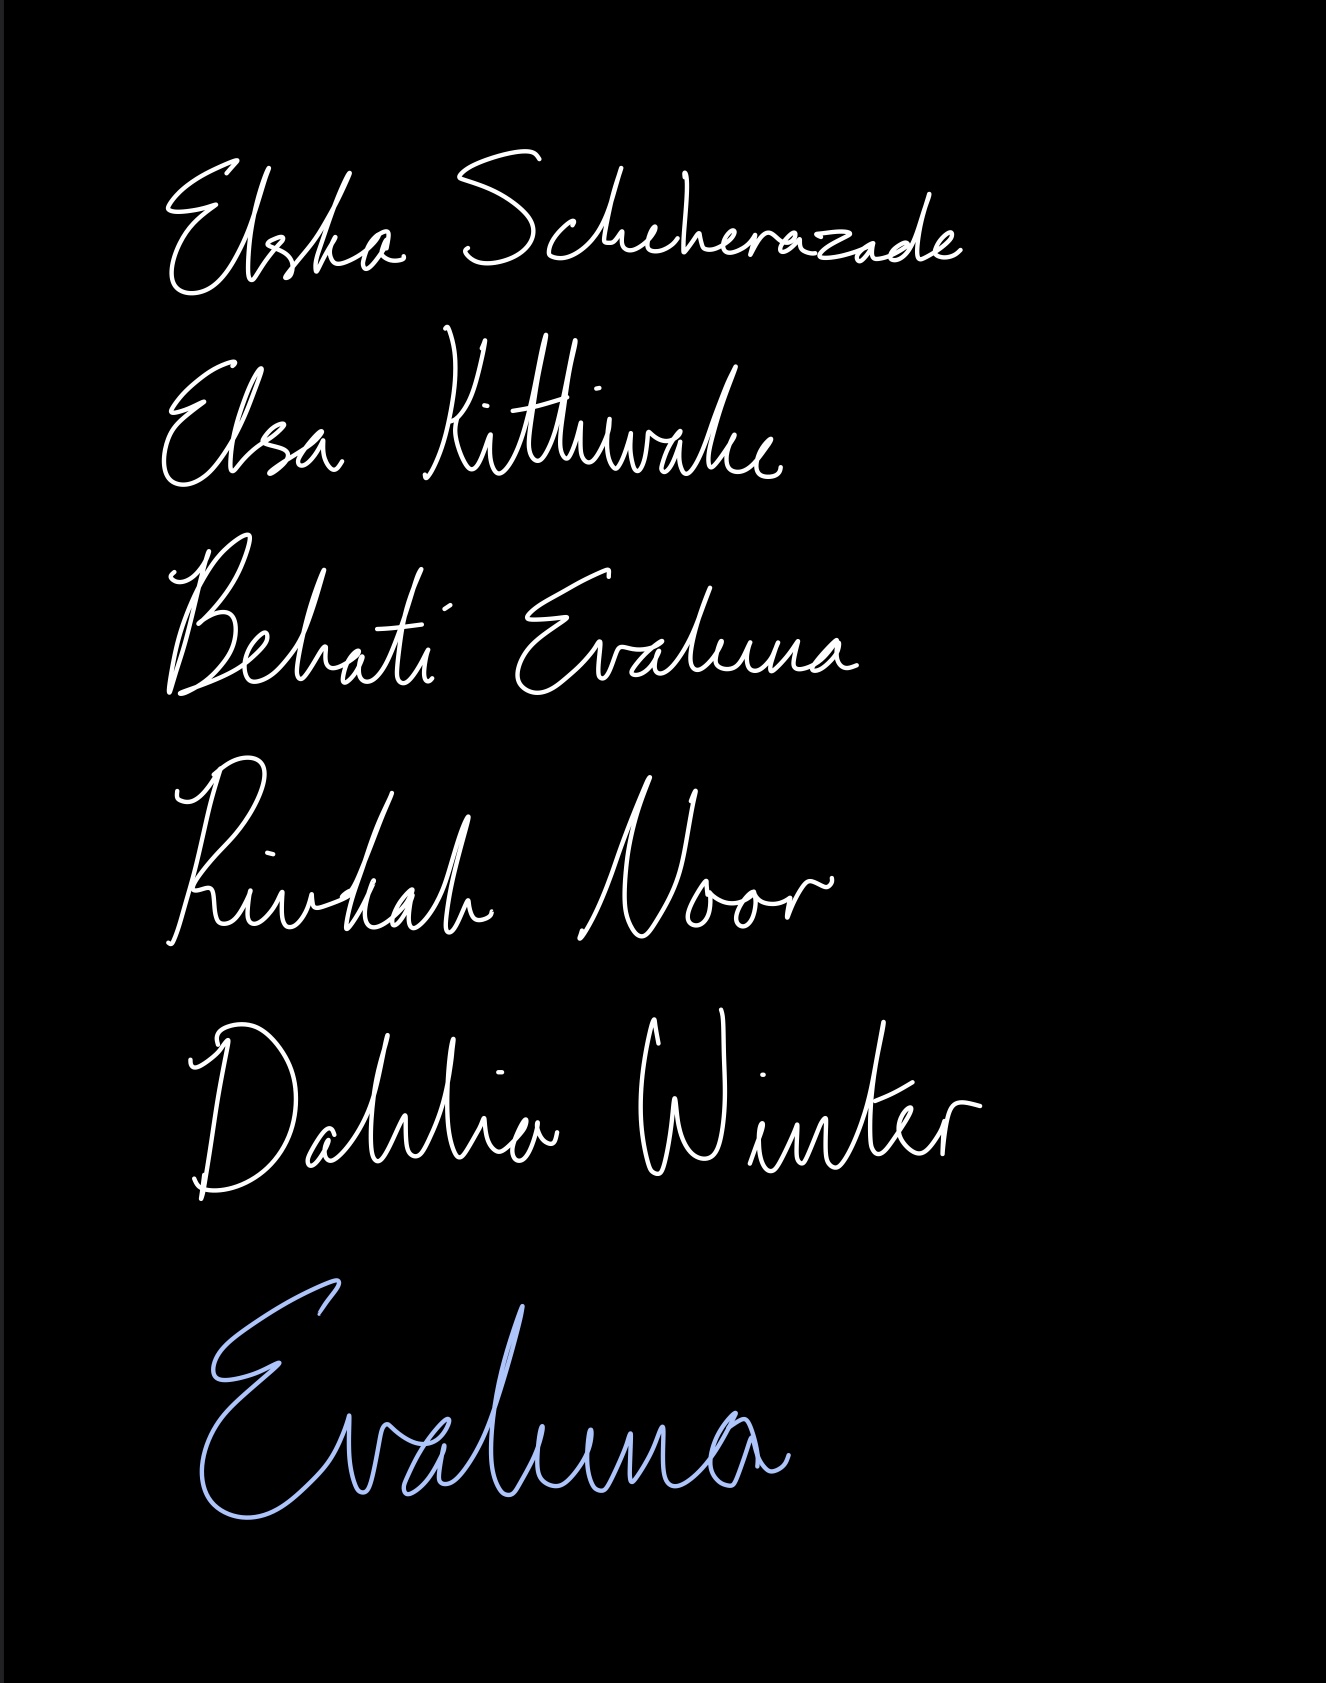 Elska Scheherazade
Elsa Kittiwake
Behati Evaluna
Rivkah Noor
Dahlia Winter
Evaluna